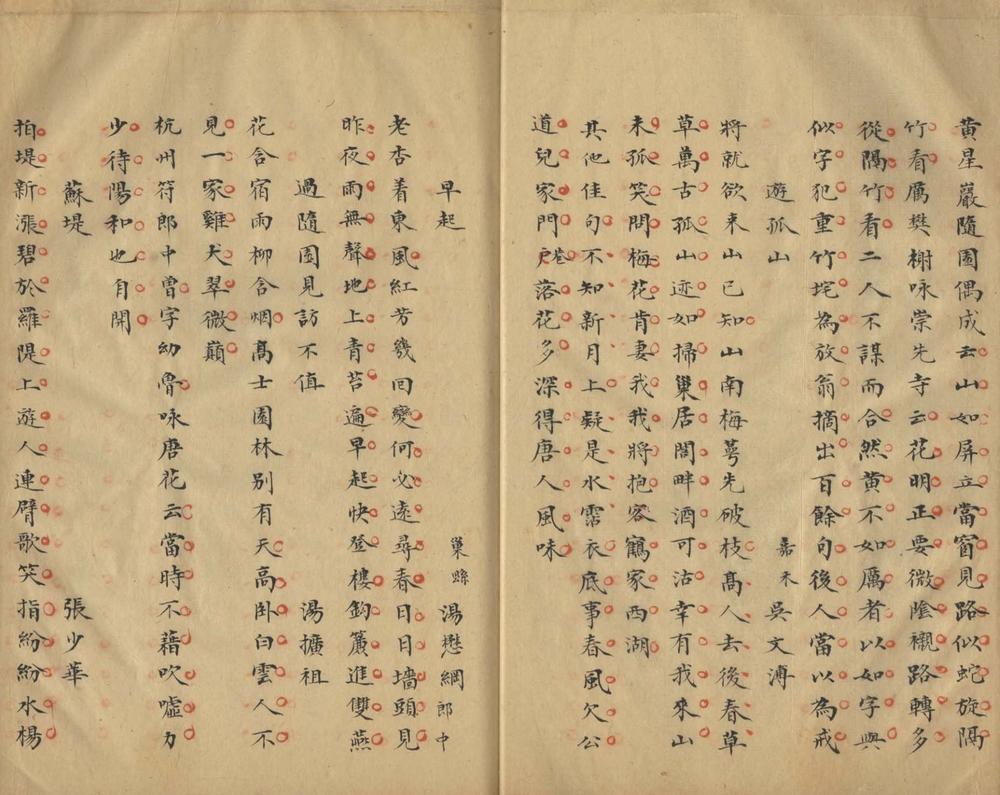 黄星巖隨園偶成云山如屏立當窗見路似蛇旋隔
竹看厲樊榭咏崇先寺云花明正要微陰襯路轉多
從隔竹看二人不謀而合然黄不如厲者以如字與
似字犯重竹垞為放翁摘出百餘句後人當以為戒
遊孤山 嘉禾 吳文溥
將就欲来山已知山南梅萼先破枝髙人去後春草
草萬古孤山迹如掃巢居閣畔酒可沽幸有我來山
未孤笑問梅花肯妻我我將抱客鶴家西湖
其他佳句不知新月上疑是水霑衣底事春風欠公
道兒家門戶巷落花多深得唐人風味
早起 巢縣 湯懋綱 郎中
老杏着東風紅芳幾回變何必遠尋春日日墻頭見
昨夜雨無聲地上青苔遍早起快登樓鈎簾進雙燕
過隨園見訪不值 湯擴祖
花含宿雨柳含烟髙士園林别有天高卧白雲人不
見一家雞犬翠微巔
杭州符郎中曽字幼魯咏唐花云當時不藉吹嘘力
少待陽和也自開
蘇堤 張少華
拍堤新漲碧於羅隄上遊人連臂歌笑指紛紛水楊